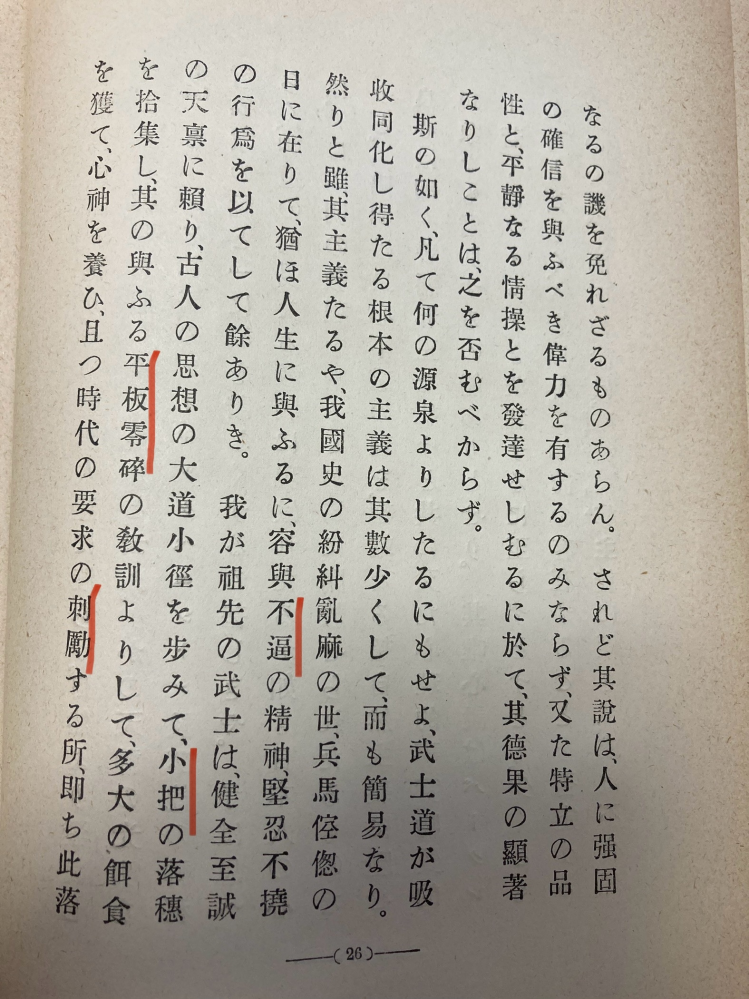 なるの譏を免れざるものあらん。されど其說は、人に强固
の確信を與ふべき偉力を有するのみならず、又た特立の品
性と、平靜なる情操とを發達せしむるに於て、其德果の顯著
なりしことは、之を否むべからず。
斯の如く、凡て何の源泉よりしたるにもせよ、武士道が吸
收同化し得たる根本の主義は其數少くして、而も簡易なり。
然りと雖、其主義たるや、我國史の紛糾亂麻の世、兵馬倥偬の
日に在りて、猶ほ人生に與ふるに、容與不逼の精神、堅忍不撓
の行爲を以てして餘ありき。我が祖先の武士は、健全至誠
の天禀に賴り、古人の思想の大道小徑を步みて、小把の落穗
を拾集し、其の與ふる平板零碎の敎訓よりして、多大の餌食
を獲て、心神を養ひ、且つ時代の要求の刺勵する所、卽ち此落
(26)